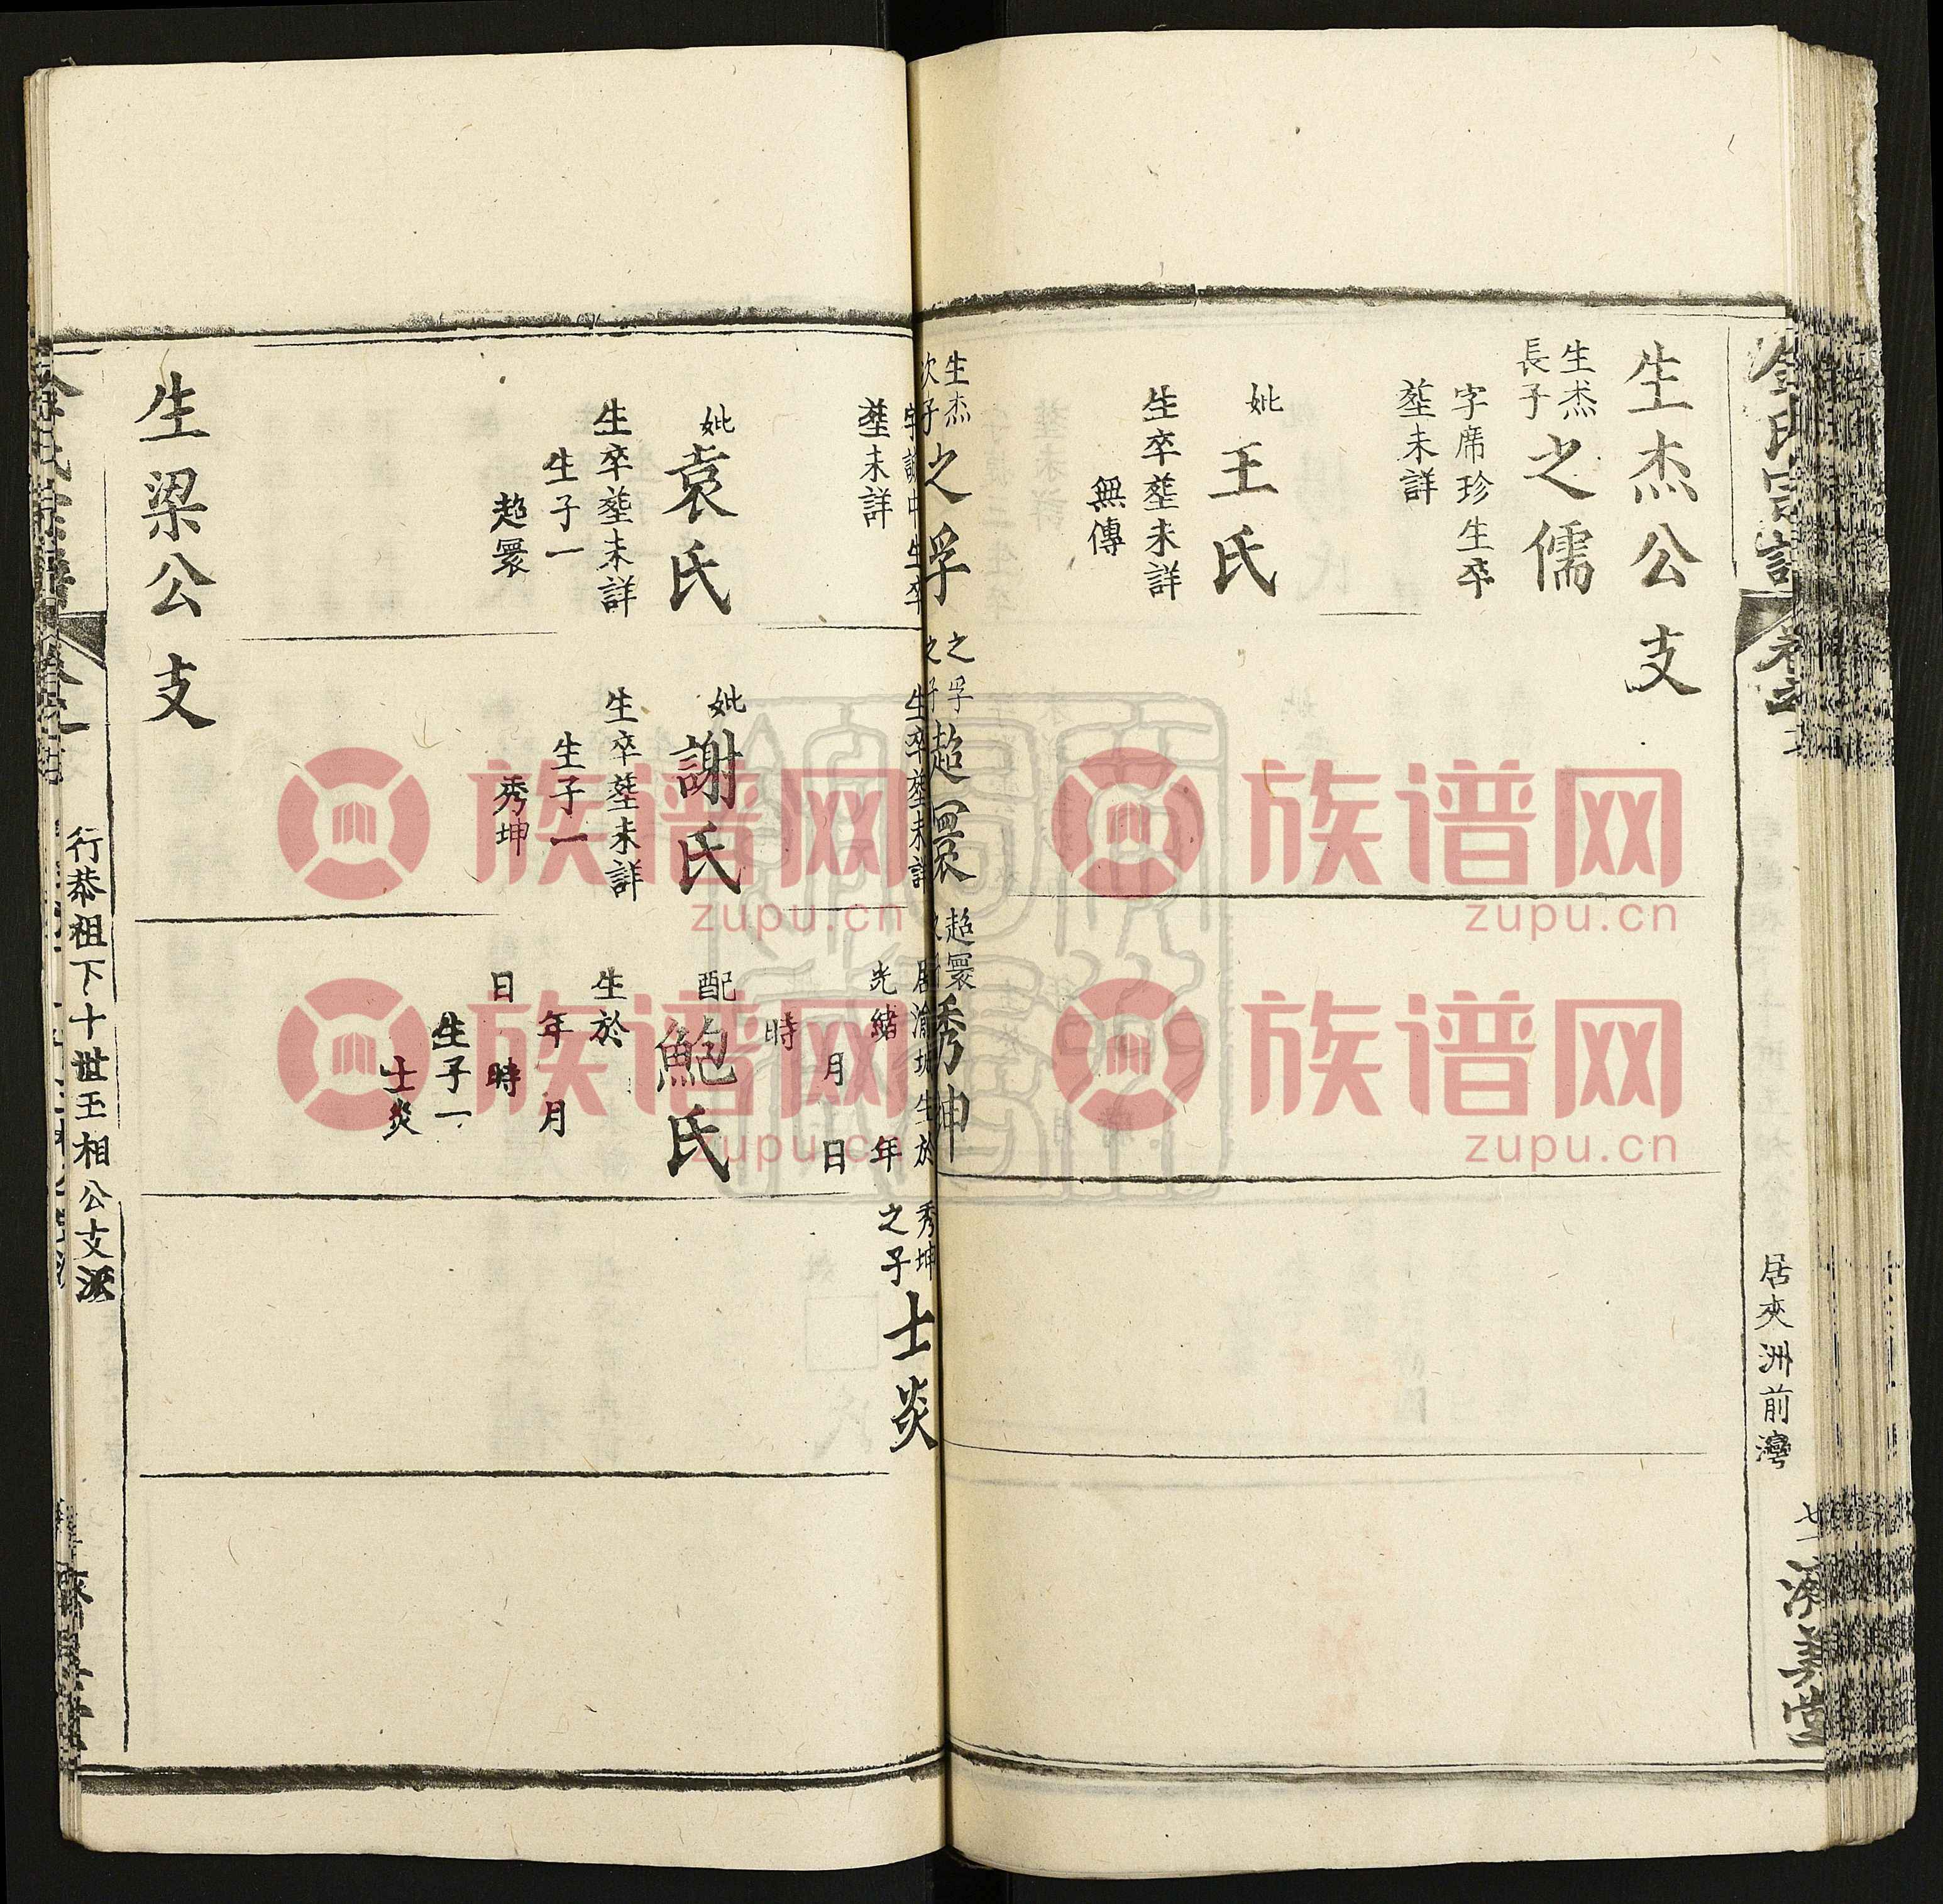 氏宗譜
居夾洲前灣
七一
濟美堂
生杰公支
生杰
長子
之儒
字席珍生卒
塟未詳
妣
王氏
生卒塟未詳
無傳
生杰
次子
之孚
生卒
塟未詳
妣
袁氏
生卒塟未詳
生子一
超寰
之孚
之子
超寰
生卒塟未詳
妣
謝氏
生卒塟未詳
生子一
秀坤
超寰
秀坤
生於
光緒 年
月 日
時
配
鮑氏
生於
年 月
日 時
生子一
士炎
秀坤
之子
士炎
生梁公支
行恭祖下十世玉相公支派
族谱网
zupu.cn
族谱网
zupu.cn
族谱网
zupu.cn
族谱网
zupu.cn